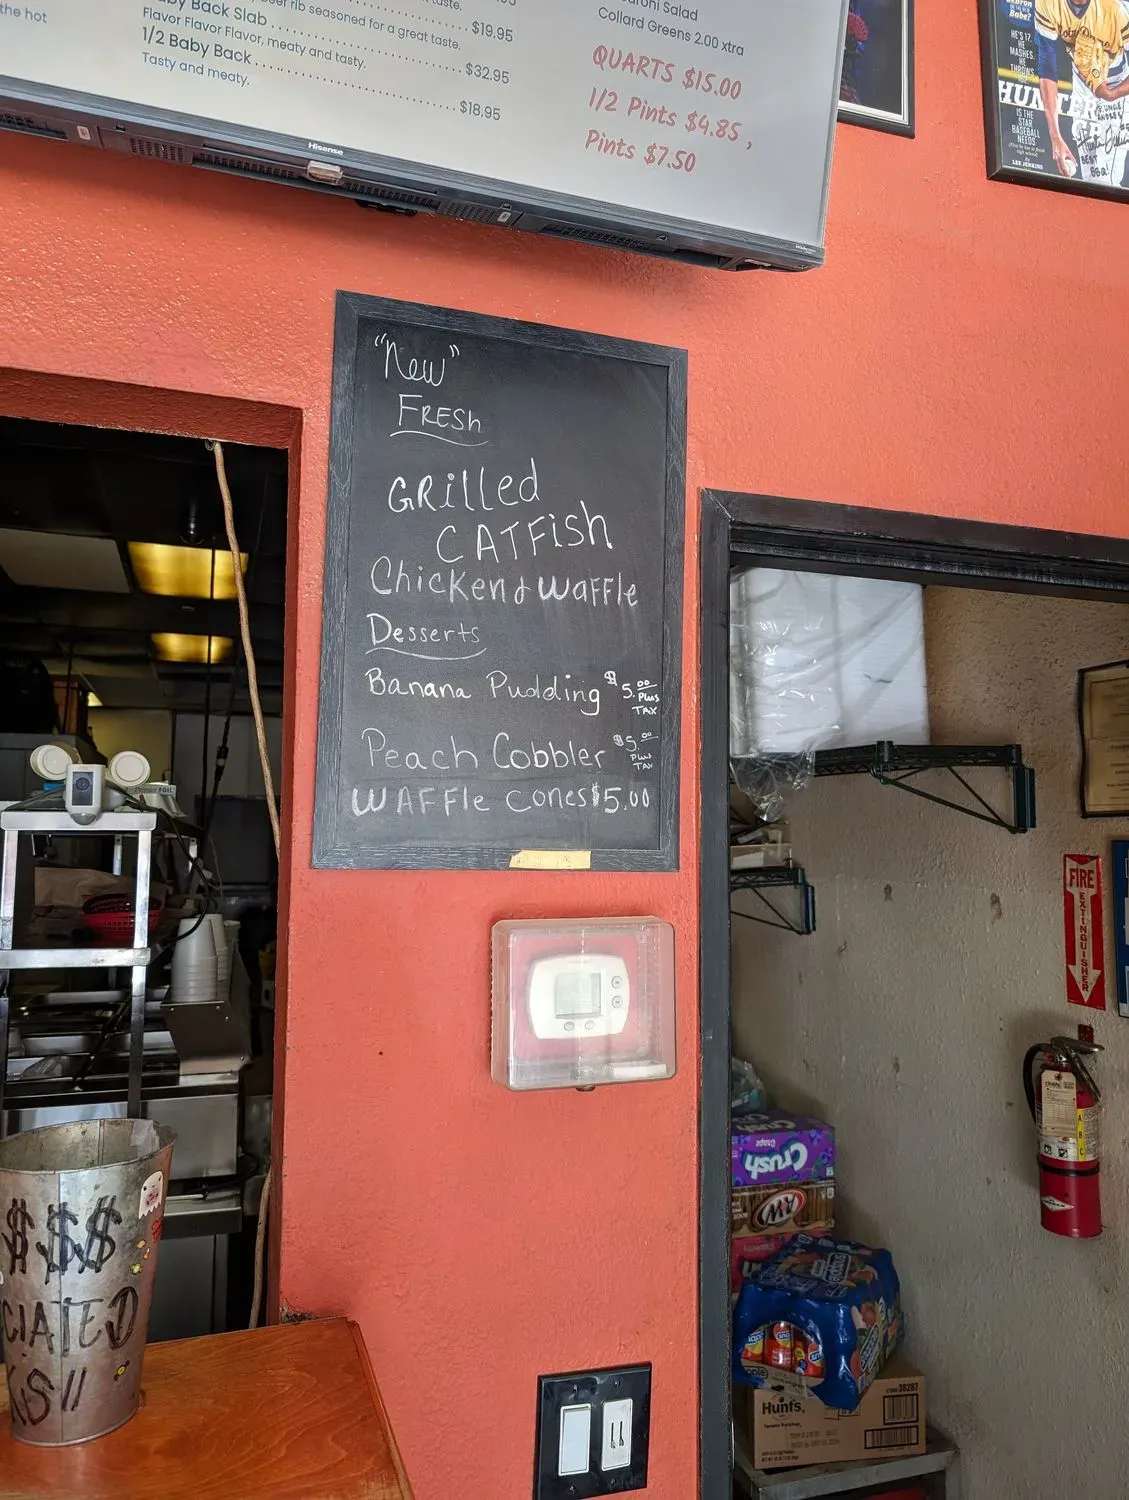 the hot
beef rib seasoned for a great taste.
$19.95
Baby Back Slab
Flavor Flavor, meaty and tasty.
$32.95
1/2 Baby Back
$18.95
Tasty and meaty.
Salad
Collard Greens 2.00 xtra
QUARTS $15.00
1/2 Pints $4.85 ,
Pints $7.50
Hisense
Babe?
HE'S 17.
HE
MASHES.
HE
THROWS
HUNTER
GR
IS THE
STAR
BASEBALL
NEEDS
By
LEE JENKINS
"New"
FRESh
GRilled
CATFish
Chicken & Waffle
Desserts
Banana Pudding $5.00 Plus TAX
Peach Cobbler $5.00 Plus TAX
WAFFle cones $5.00
FOIL
$$$
CIATED
KS!!
FIRE
EXTINGUISHER
A
B
C
Crush
Grape
A&W
Hunt's
Tomato Ketchup
38287